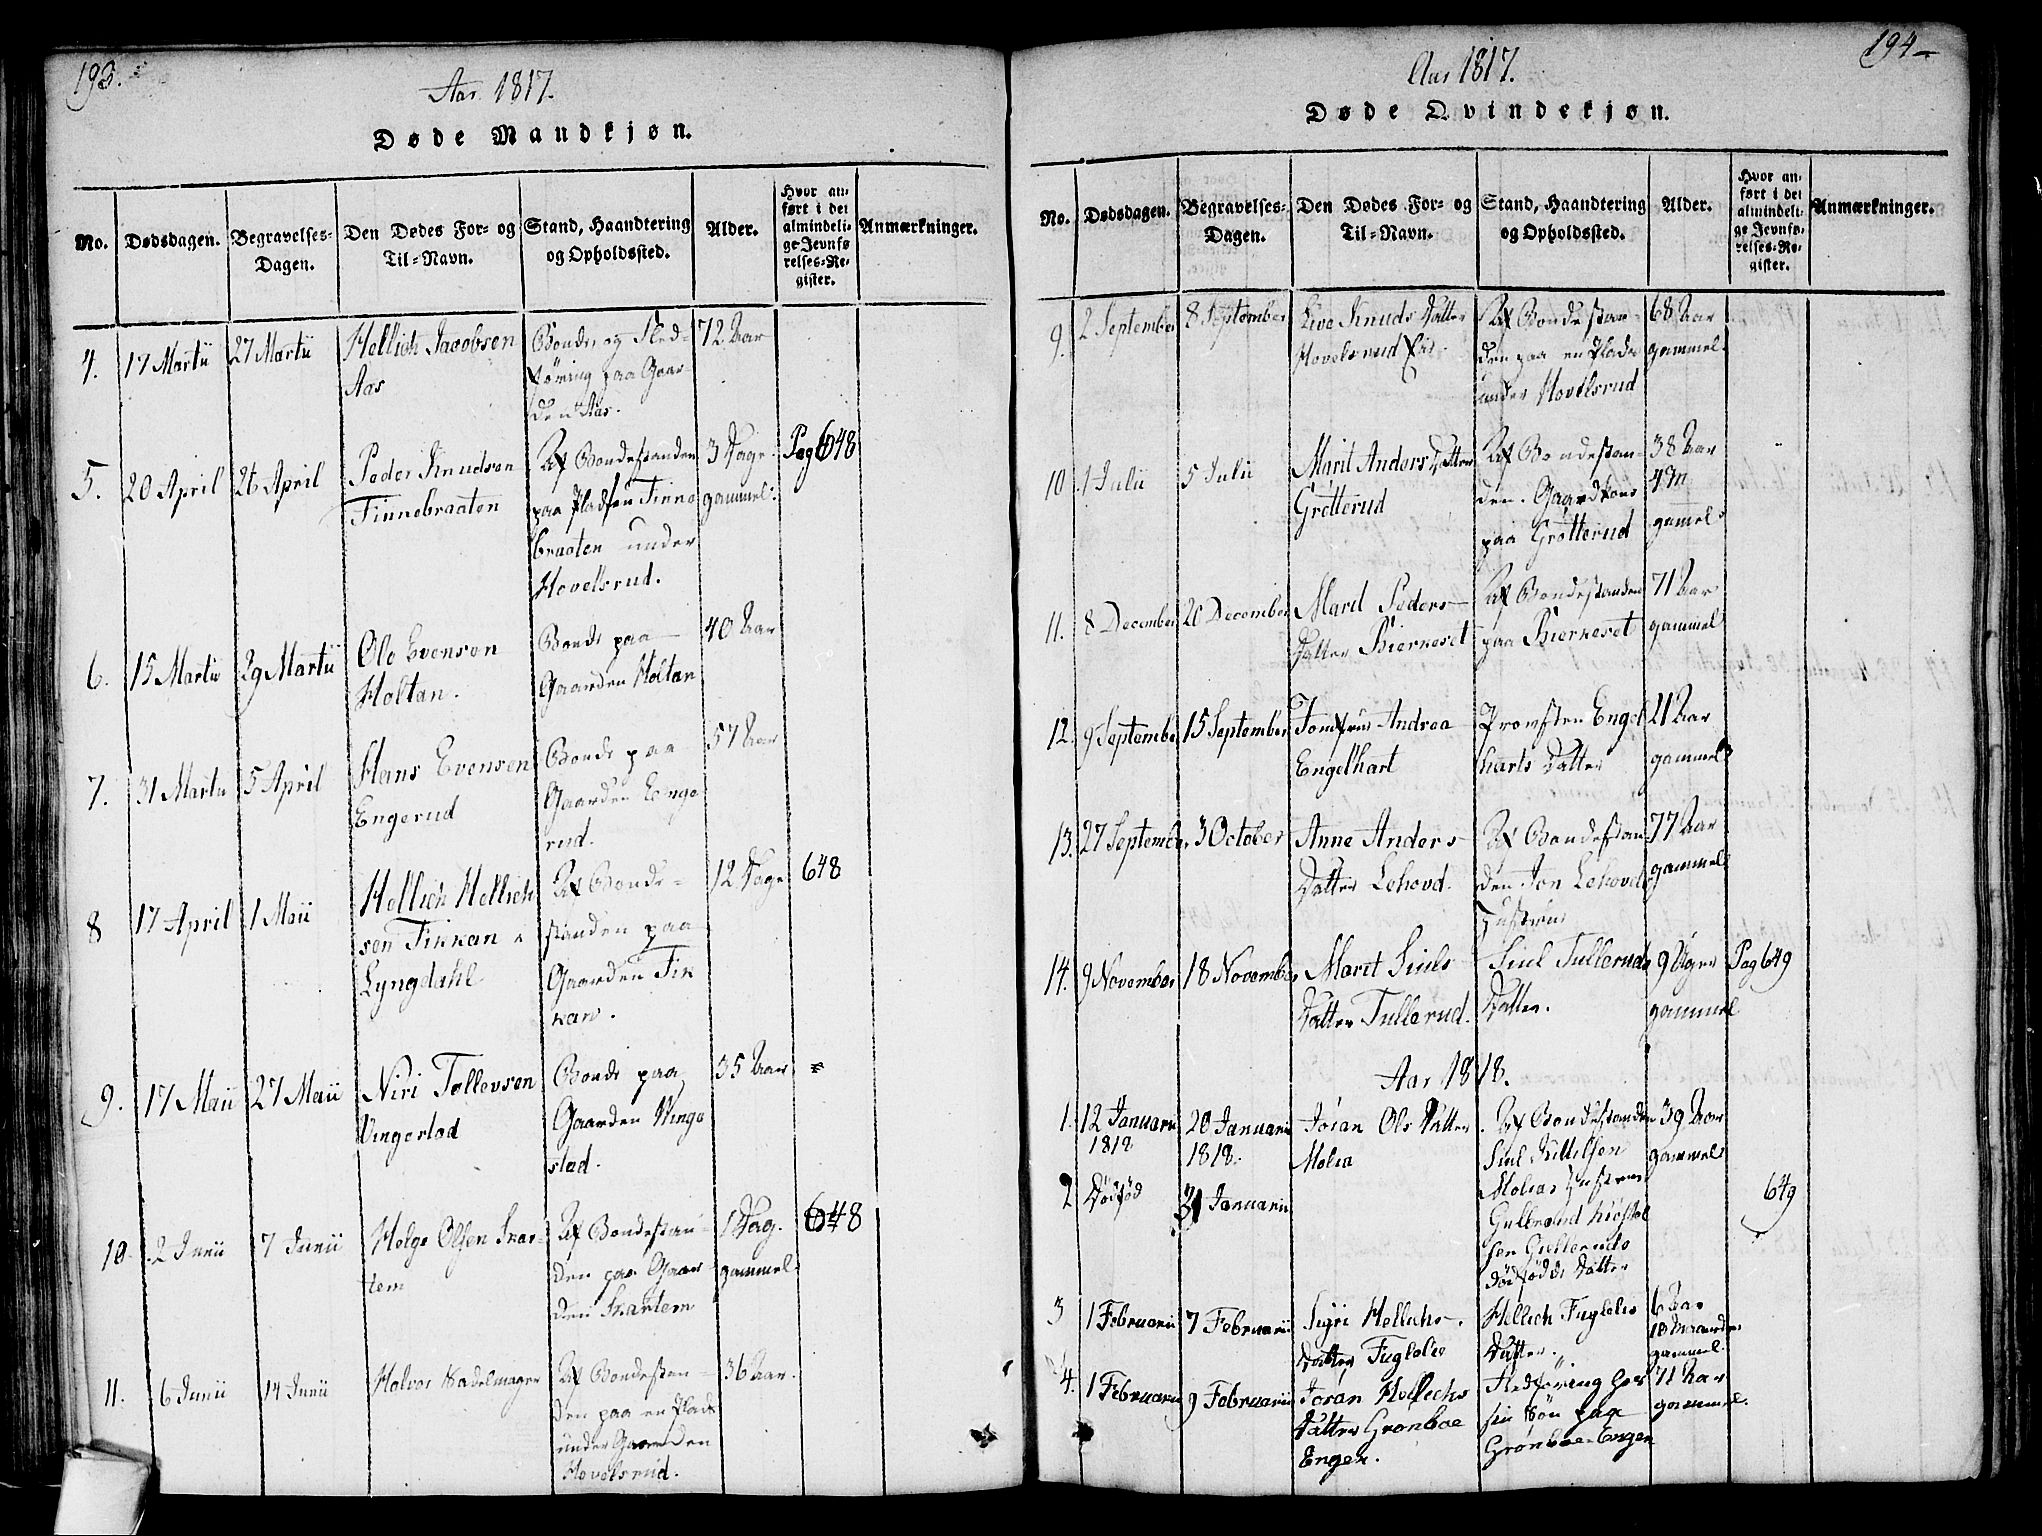 193.
Aar 1817.
Døde Mandkjøn.
No.
Dødsdagen.
Begravelses-
Dagen.
Den Dødes For- og
Til-Navn.
Stand, Haandtering
og Opholdssted.
Alder.
Hvor an-
ført i det
almindeli-
ge Jevnfø
relses-Re-
gister.
Anmærkninger.
4.
17 Martii
27 Martii
Hellich Jacobsen
Aas
Bonde og Fled-
føring paa Gaar-
den Aas.
72 Aar
5.
20 April
26 April
Peder Knudsen
Finnebraaten
Af Bondestanden
paa Pladsen Finne
braaten under
Hovelsrud.
3 Dage
gammel.
Pag 648
6.
15 Martii
29 Martii
Ole Evensen
Holtan.
Bonde paa
Gaarden Holtan
40 Aar
7.
31 Martii
5 April
Hans Evensen
Engerud
Bonde paa
Gaarden Enge
rud.
57 Aar
8
17 April
1 Maii
Hellich Hellich
sen Fikkan
Lyngdahl
Af Bonde-
standen paa
Gaarden Fik
kan.
12 Dage
648
9.
17 Maii
27 Maii
Niri Tollevsen
Vingestad
Bonde paa
Gaarden Vinge
stad.
35 Aar
10
2 Junii
7 Junii
Helge Olsen Skar-
tem
Af Bondestan-
den paa Gaar-
den Skartem
1 Dag.
gammel.
648
11.
6 Junii
14 Junii
Halvor Sadelmager
Af Bondestan-
den paa en Plads
under Gaarden
Hovelsrud.
36 Aar.
194
Aar 1817.
Døde Qvindekjøn.
No.
Dødsdagen.
Begravelses-
Dagen.
Den Dødes For- og
Til-Navn.
Stand, Haandtering
og Opholdssted.
Alder.
Hvor an-
ført i det
almindeli-
ge Jevnfø-
relses-Re-
gister.
Anmærkninger.
9.
2 September
8 September
Live Knuds Datter
Hovelsrud
Af Bondestan
den paa en Plads
under Hovelsrud
68 Aar
gammel.
10
1 Julii
5 Julii
Marit Anders Datter
Grøtterud
Af Bondestan-
den. Gaardkone
paa Grøtterud
38 Aar
4 m
gammel
11.
8 December
20 December
Marit Peders-
Datter Bierkeset
Af Bondestanden
paa Bierkeset
71 Aar
gammel
12.
9 September
15 September
Jomfrue Andrea
Engelhart
Provsten Engel
harts Datter
21 Aar
gammel
13.
27 September
3 October
Anne Anders-
Datter Lehovd.
Af Bondestan
den Jon Lehovds
Hustrue
77 Aar
gammel
14.
9 November
18 November
Marit Siuls-
Datter Tullerud.
Siul Tulleruds
Datter.
9 Uger
gammel
Pag 649
Aar 1818.
1.
12 Januarii
1818
20 Januarii
1818.
Jøran Ols Datter
Molia
Af Bondestanden
Siul Kittelsen
Molias Hustrue
39 Aar
gammel
2
Dødfød
31 Januarii
Gulbrand
sen Gulleruds
dødfødde Datter
649
3
1 Februarii
7 Februarii
Sigri Hellichs-
Datter Fuglelie
Hellich Fuglelies
Datter.
6 Aar
10 Maaneder
gammel.
4.
1 Februarii
9 Februarii
Jøran Hellichs
Datter Grønboe
Engen.
Fledføring hos
sin Søn paa
Grønboe-Engen
71 Aar
gammel.